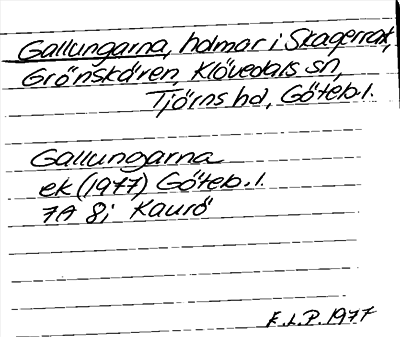 Gallungarna, holmar i Skagerrak,
Grönskären, Klövedals sn,
Tjörns hd, Göteb. l.
Gallungarna
ek (1977) Göteb. l.
7A 8i Kaurö
F.L.P. 1977